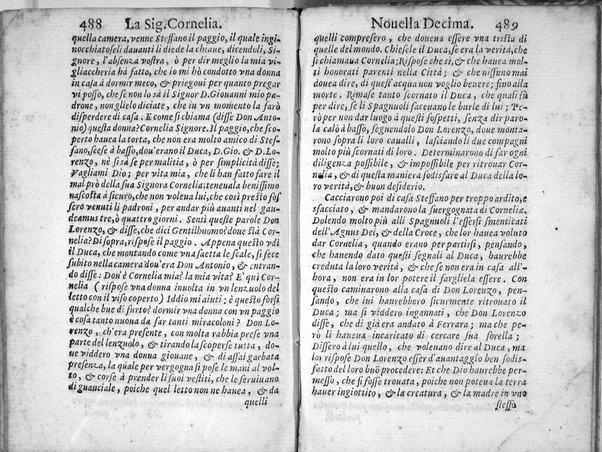 488 La Sig. Cornelia.
quella camera, venne Steffano il paggio, il quale ingi-
nocchiatoseli dauanti li diede la chiaue, dicendoli, Si-
gnore, l'absenza vostra, ò per dir meglio la mia vi-
gliaccheria hà fatto, che io mi hò condotto vna donna
in casa à dormir meco, & priegoui per quanto pregar
vi posso, che se non lo sà il Signor D. Giouanni mio pa-
drone, non glielo diciate, che in vn momento la farà
disperdere di casa. E come si chiama (disse Don Anto-
nio) questa donna? Cornelia Signore. Il paggio, che sco-
perto hauea la torta, che non era molto amico di Stef-
fano, scese à basso, dou'erano il Duca, D. Gio. & D. Lo-
renzo, nè si sà se per malitia, ò per simplicità disse;
Vagliami Dio; per vita mia, che li han fatto fare il
mal prò della sua Signora Cornelia; teneuala benissimo
nascosta à sicuro, che non voleua lui, che così presto fos
sero venuti li padroni, per andar più allongati nel gau-
deamus trè, ò quattro giorni. Sentì queste parole Don
Lorenzo, & disse, che dici Gentilhuomo? doue stà Cor-
nelia? Di sopra, rispose il paggio. Appena questo vdì
il Duca, che montando come vna saetta le scale, si fece
subito nella camera dou'era Don Antonio, & entran-
do disse: Don'è Cornelia mia? la mia vita? E' quì Cor-
nelia (rispose vna donna inuolta in vn lenzuolo del
letto con il viso coperto) Iddio mi aiuti: è questo forsi
qualche bue di furto? dormir vna donna con vn paggio
è cosa tanto nuoua da far tanti miracoloni? Don Lo-
renzo, ch'era presente, con molta rabbia prese vna
parte del lenzuolo, & tirando la scoperse tutta, do-
ue viddero vna donna giouane, & di assai garbata
presenza, la quale per vergogna si pose le mani al vol-
to, & corse à prender li suoi vestiti, che le seruiuano
di guanciale, poiche quel letto non ne hauea, & da
quelli
Nouella Decima. 489
quelli compresero, che doueua essere vna trista di
quelle del mondo. Chiesele il Duca, se era la verità, che
si chiamaua Cornelia; Rispose che sì, & che hauea mol-
ti honorati parenti nella Città; & che nissuno mai
douea dire, di quest'acqua non voglio beuere; fino alla
morte. Rimase tanto scornato il Duca, che quasi fù
per dire, se li Spagnuoli faceuano le burle di lui; Pe-
rò per non dar luogo à questi sospetti, senza dir paro-
la calò à basso, seguendolo Don Lorenzo, doue monta-
rono sopra li loro caualli, lasciando li due compagni
molto più scornati di loro. Determinarono di far ogni
diligenza possibile, & impossibile per ritrouar Corne-
lia, & di questa maniera sodisfare al Duca della lo-
ro verità, & buon desiderio.
Cacciarono poi di casa Steffano per troppo ardito, e
sfacciato, & mandarono la suergognata di Cornelia.
Dolendo molto più alli Spagnuoli l'essersi smenticati
dell'Agnus Dei, & della Croce, che lor hauea voluto
dar Cornelia, quando erano per partirsi, pensando,
che hauendo dato questi segnali al Duca, haurebbe
creduta la loro verità, & che se non era in casa all'
hora, non era in lor potere il fargliela essere. Con
questo caminarono alla casa di Don Lorenzo, pen-
sando, che iui haurebbero sicurmente ritrouato il
Duca; ma si viddero ingannati, che Don Lorenzo
disse, che di già era andato à Ferrara; ma che pe-
rò li hauea incaricato di cercare sua sorella;
Dissero à lui quello, che voleuano dire al Duca, ma
lor rispose Don Lorenzo esser d'auantaggio ben sodis-
fatto del loro buõ procedere; Et che Dio haurebbe per-
messo, che si fosse trouata, poiche non poteua la terra
hauer ingiottito, & la creatura, & la madre in vno
stesso